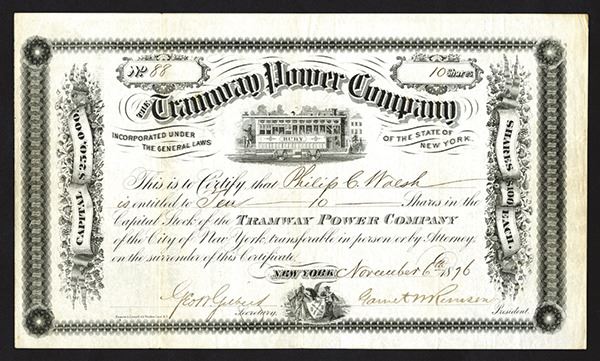 No 88
10 Shares
THE Tramway Power Company
INCORPORATED UNDER THE GENERAL LAWS
OF THE STATE OF NEW YORK.
CAPITAL $250,000.
SHARES $100 EACH.
This is to Certify that Philip C. Walsh
is entitled to Ten 10 Shares in the
Capital Stock of the TRAMWAY POWER COMPANY
of the City of New York, transferable in person or by Attorney,
on the surrender of this Certificate.
NEW YORK November 6th 1876
Secretary.
President.